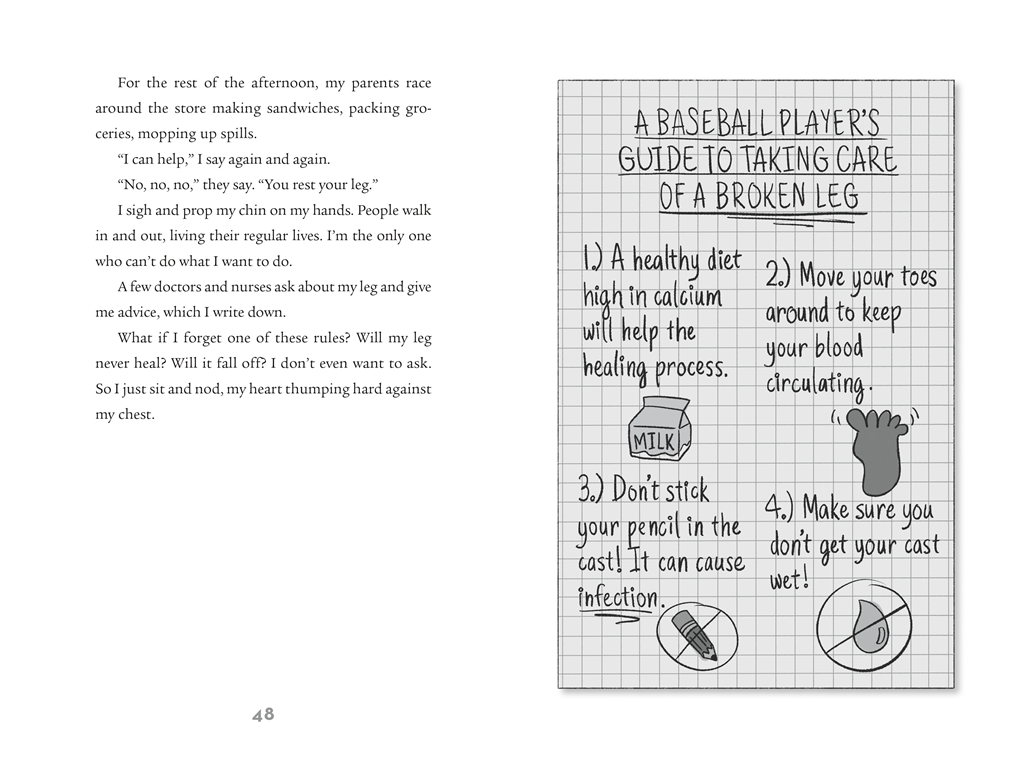 For the rest of the afternoon, my parents race
around the store making sandwiches, packing gro-
ceries, mopping up spills.
“I can help,” I say again and again.
“No, no, no,” they say. “You rest your leg.”
I sigh and prop my chin on my hands. People walk
in and out, living their regular lives. I’m the only one
who can’t do what I want to do.
A few doctors and nurses ask about my leg and give
me advice, which I write down.
What if I forget one of these rules? Will my leg
never heal? Will it fall off? I don’t even want to ask.
So I just sit and nod, my heart thumping hard against
my chest.
48
A BASEBALL PLAYER’S
GUIDE TO TAKING CARE
OF A BROKEN LEG
1.) A healthy diet
high in calcium
will help the
healing process.
MILK
2.) Move your toes
around to keep
your blood
circulating.
3.) Don’t stick
your pencil in the
cast! It can cause
infection.
4.) Make sure you
don’t get your cast
wet!